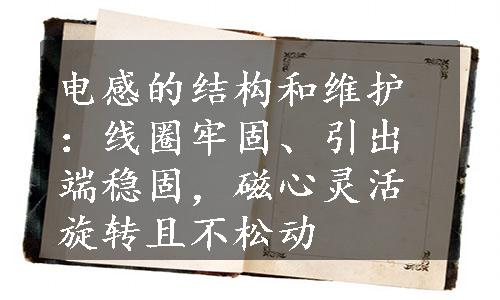 电感的结构和维护
：线圈牢固、引出
端稳固，磁心灵活
旋转且不松动